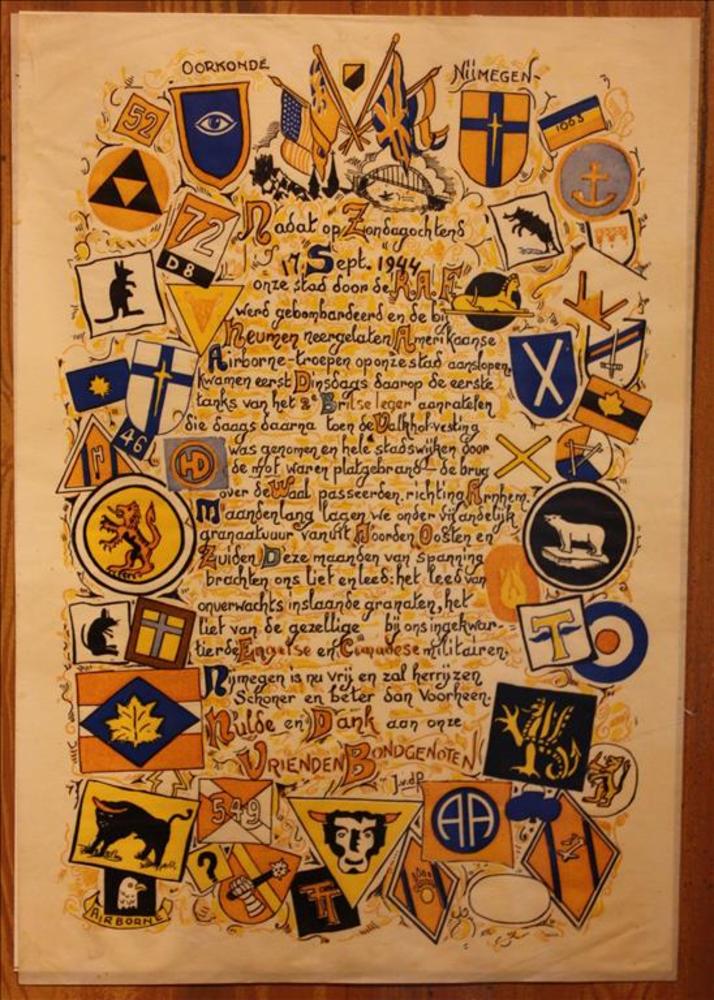 OORKONDE
NIJMEGEN
52
1003
72
D8
Nadat op Zondagochtend
17 Sept. 1944
onze stad door de R.A.F.
werd gebombardeerd en de bij
Heumen neergelaten Amerikaanse
Airborne-troepen op onze stad aanslopen,
kwamen eerst Dinsdags daarop de eerste
tanks van het 2e Britse leger aanratelen
die daags daarna toen de Valkhof-vesting
46
was genomen en hele stadswijken door
HD
de mof waren platgebrand - de brug
over de Waal passeerden, richting Arnhem.
Maandenlang lagen we onder vijandelijk
granaatvuur vanuit Noorden Oosten en
Zuiden. Deze maanden van spanning
brachten ons lief en leed: het leed van
onverwachts inslaande granaten, het
lief van de gezellige bij ons ingekwar-
tierde Engelse en Canadese militairen.
T
Nijmegen is nu vrij en zal herrijzen
Schoner en beter dan Voorheen.
Hulde en Dank aan onze
VRIENDEN BONDGENOTEN
J.v.d.P.
549
AA
?
AIRBORNE